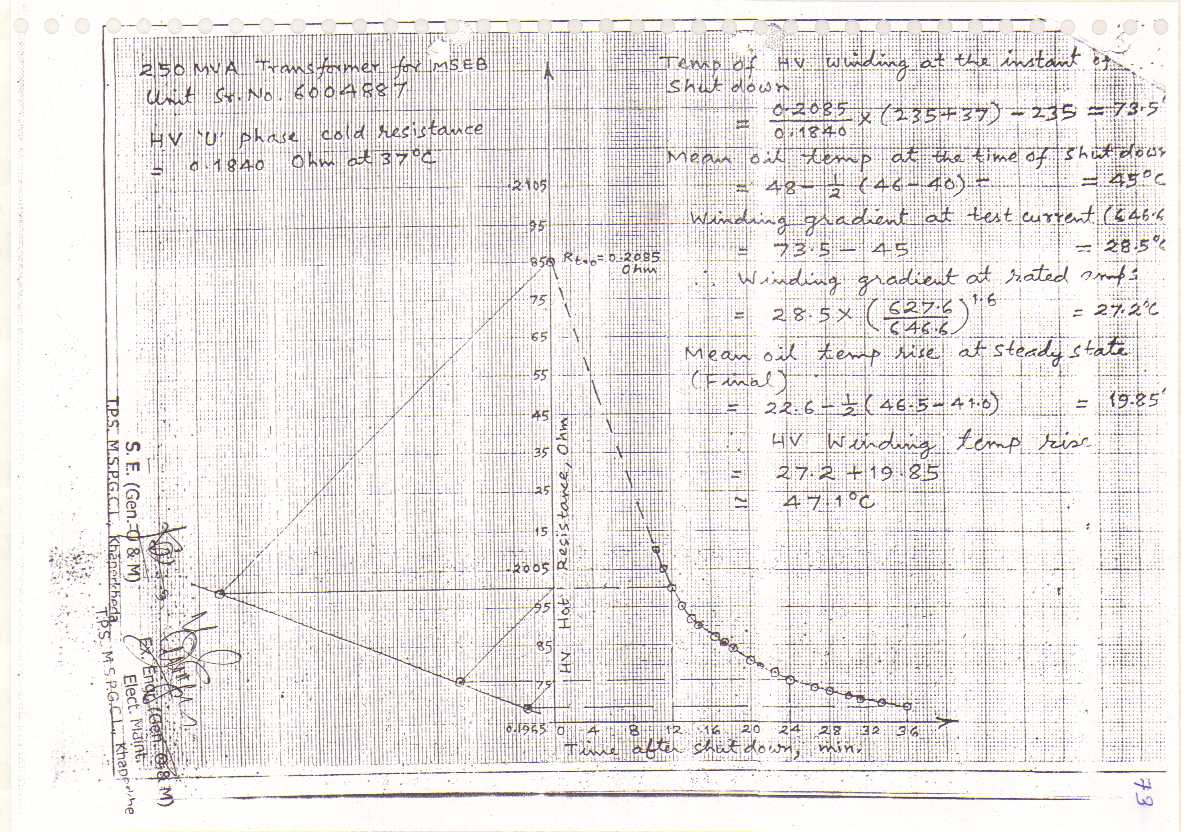 250 MVA Transformer for MSEB
Unit Sr. No. 6004887
HV 'U' phase cold resistance
= 0.1840 Ohm at 37°C
Temp of HV winding at the instant of
Shut down
= 0.2085/0.1840 × (235+37) - 235 = 73.5°
Mean oil temp at the time of shut down
= 48 - 1/2 (46-40) = = 45°C
Winding gradient at test current (646.6
= 73.5 - 45 = 28.5°C
∴ Winding gradient at rated amps
= 28.5 × (627.6/646.6)^1.6 = 27.2°C
Mean oil temp rise at steady state
(Final)
= 22.6 - 1/2 (46.5-41.0) = 19.85°
∴ HV Winding temp rise
= 27.2 + 19.85
= 47.1°C
.2105
95
85
Rt=0 = 0.2085
Ohm
75
65
55
45
35
25
15
.2005
95
85
75
0.1965
HV Hot Resistance, Ohm
0 4 8 12 16 20 24 28 32 36
Time after shut down, min.
S. E. (Gen. O & M)
T.P.S. M.S.P.G.C.L., Khaperkheda
Ex. Engr. (Gen. O & M)
Elect. Maint.
T.P.S. M.S.P.G.C.L., Khaperkhe
73